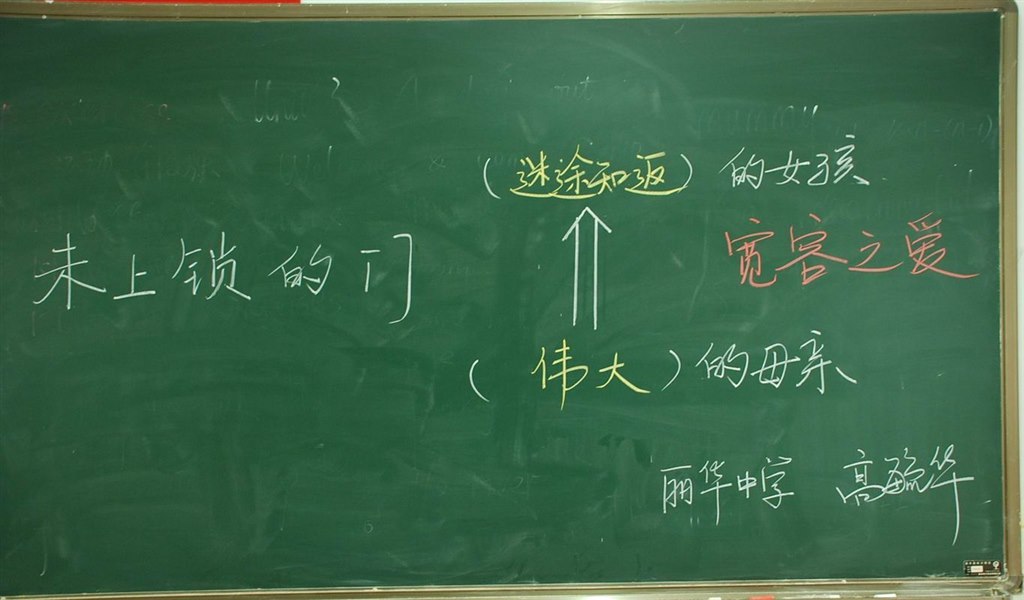 (迷途知返)的女孩
宽容之爱
未上锁的门
(伟大)的母亲
丽华中学 高毓华